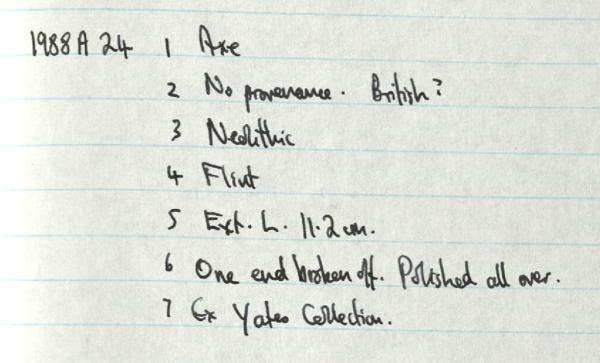 1988A 24 1 Axe
2 No provenance. British?
3 Neolithic
4 Flint
5 Ext. L. 11.2 cm.
6 One end broken off. Polished all over.
7 Ex Yates Collection.